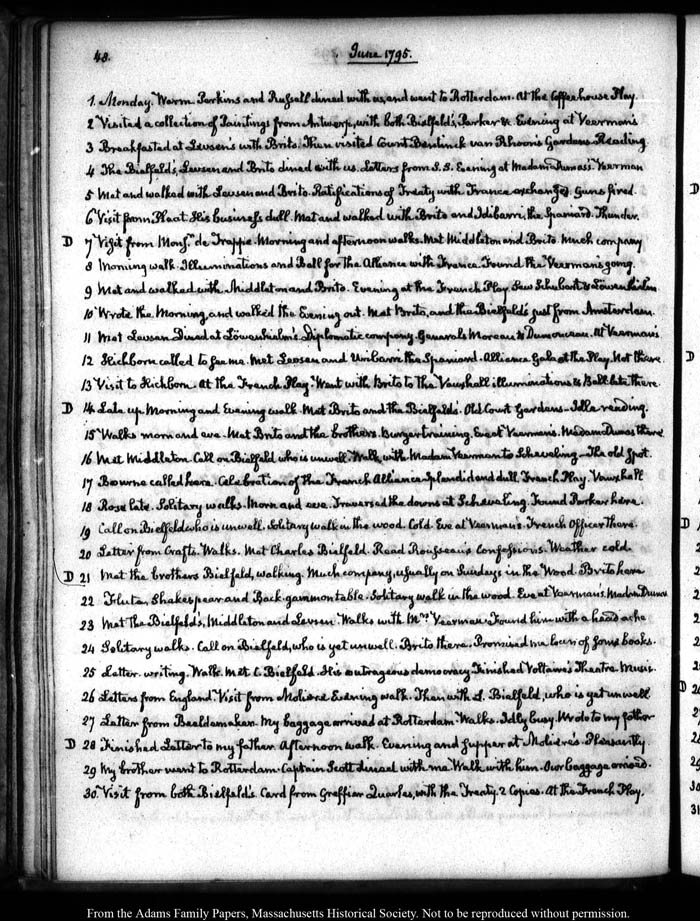 48.
June 1795.
1. Monday. Warm. Perkins and Russell dined with us, and went to Rotterdam. At the Coffee house Play.
2 Visited a collection of Paintings from Antwerp, with both Bielfeld's, Parker &c. Evening at Veerman's
3 Breakfasted at Levsen's with Brito. Then visited Count Bentinck van Rhoon's Gardens. Reading
4 The Bielfelds, Levsen and Brito dined with us. Letters from S.S. Evening at Madam Dumas's. Veerman
5 Met and walked with Levsen and Brito. Ratifications of Treaty with France exchanged. Guns fired.
6 Visit from Plaat. His business dull. Met and walked with Brito and the Spaniard. Thunder.
D 7 Visit from Monsr. de Trappe. Morning and afternoon walks. Met Middleton and Brito. Much company
8 Morning walk. Illuminations and Ball for the Alliance with France. Found the Veerman's going.
9 Met and walked with Middleton and Brito. Evening at the French Play. Saw Schubart & Löwenhielm
10 Wrote the Morning, and walked the Evening out. Met Brito, and the Bielfeld's just from Amsterdam.
11 Met Levsen. Dined at Löwenhielm's. Diplomatic company. Generals Moreau & Dumonceau. At Veerman's
12 Hichborn called to see me. Met Levsen and the Spaniard. Alliance Gala at the Play. Not there.
13 Visit to Hichborn. At the French Play. Went with Brito to the Vauxhall illuminations & Ball late there.
D 14 Late up. Morning and Evening walk. Met Brito and the Bielfelds. Old Court Gardens—Idle reading.
15 Walks morn and eve. Met Brito and the brothers. Burger training. Eve at Veerman's. Madam Dumas there
16 Met Middleton. Call on Bielfeld who is unwell. Walk with Madam Veerman to Scheveling—The old spot.
17 Bourne called here. Celebration of the French Alliance splendid and dull. French Play. Vauxhall
18 Rose late. Solitary walks. Morn and eve. Traversed the downs at Scheveling. Found Parker here.
19 Call on Bielfeld who is unwell. Solitary walk in the wood. Cold. Eve at Veerman's. French Officer there.
20 Letter from Crafts. Walks. Met Charles Bielfeld. Read Rousseau's Confessions. Weather cold.
D 21 Met the brothers Bielfeld, walking. Much company, usually on Sundays in the Wood. Brito here
22 Flute. Shakespear and Back-gammon table. Solitary walk in the wood. Eve at Veerman's. Madam Dumas
23 Met the Bielfeld's, Middleton and Levsen. Walks with Mrs Veerman. Found him with a head ache
24 Solitary walks. Call on Bielfeld, who is yet unwell. Brito there. Promised me loan of some books.
25 Letter writing. Walk. Met C. Bielfeld. His outrageous democracy. Finished Voltaire's Theatre. Music.
26 Letters from England. Visit from Moliere. Evening walk. Then with Bielfeld, who is yet unwell
27 Letter from Beeldemaker. My baggage arrived at Rotterdam. Walks. Idly busy. Wrote to my father
D 28 Finished Letter to my father. Afternoon walk. Evening and supper at Moliere's. Pleasantly
29 My brother went to Rotterdam. Captain Scott dined with me. Walk with him. Our baggage arrived.
30. Visit from both Bielfeld's. Card from Greffier Quarles, with the Treaty. 2 Copies. At the French Play.
From the Adams Family Papers, Massachusetts Historical Society. Not to be reproduced without permission.